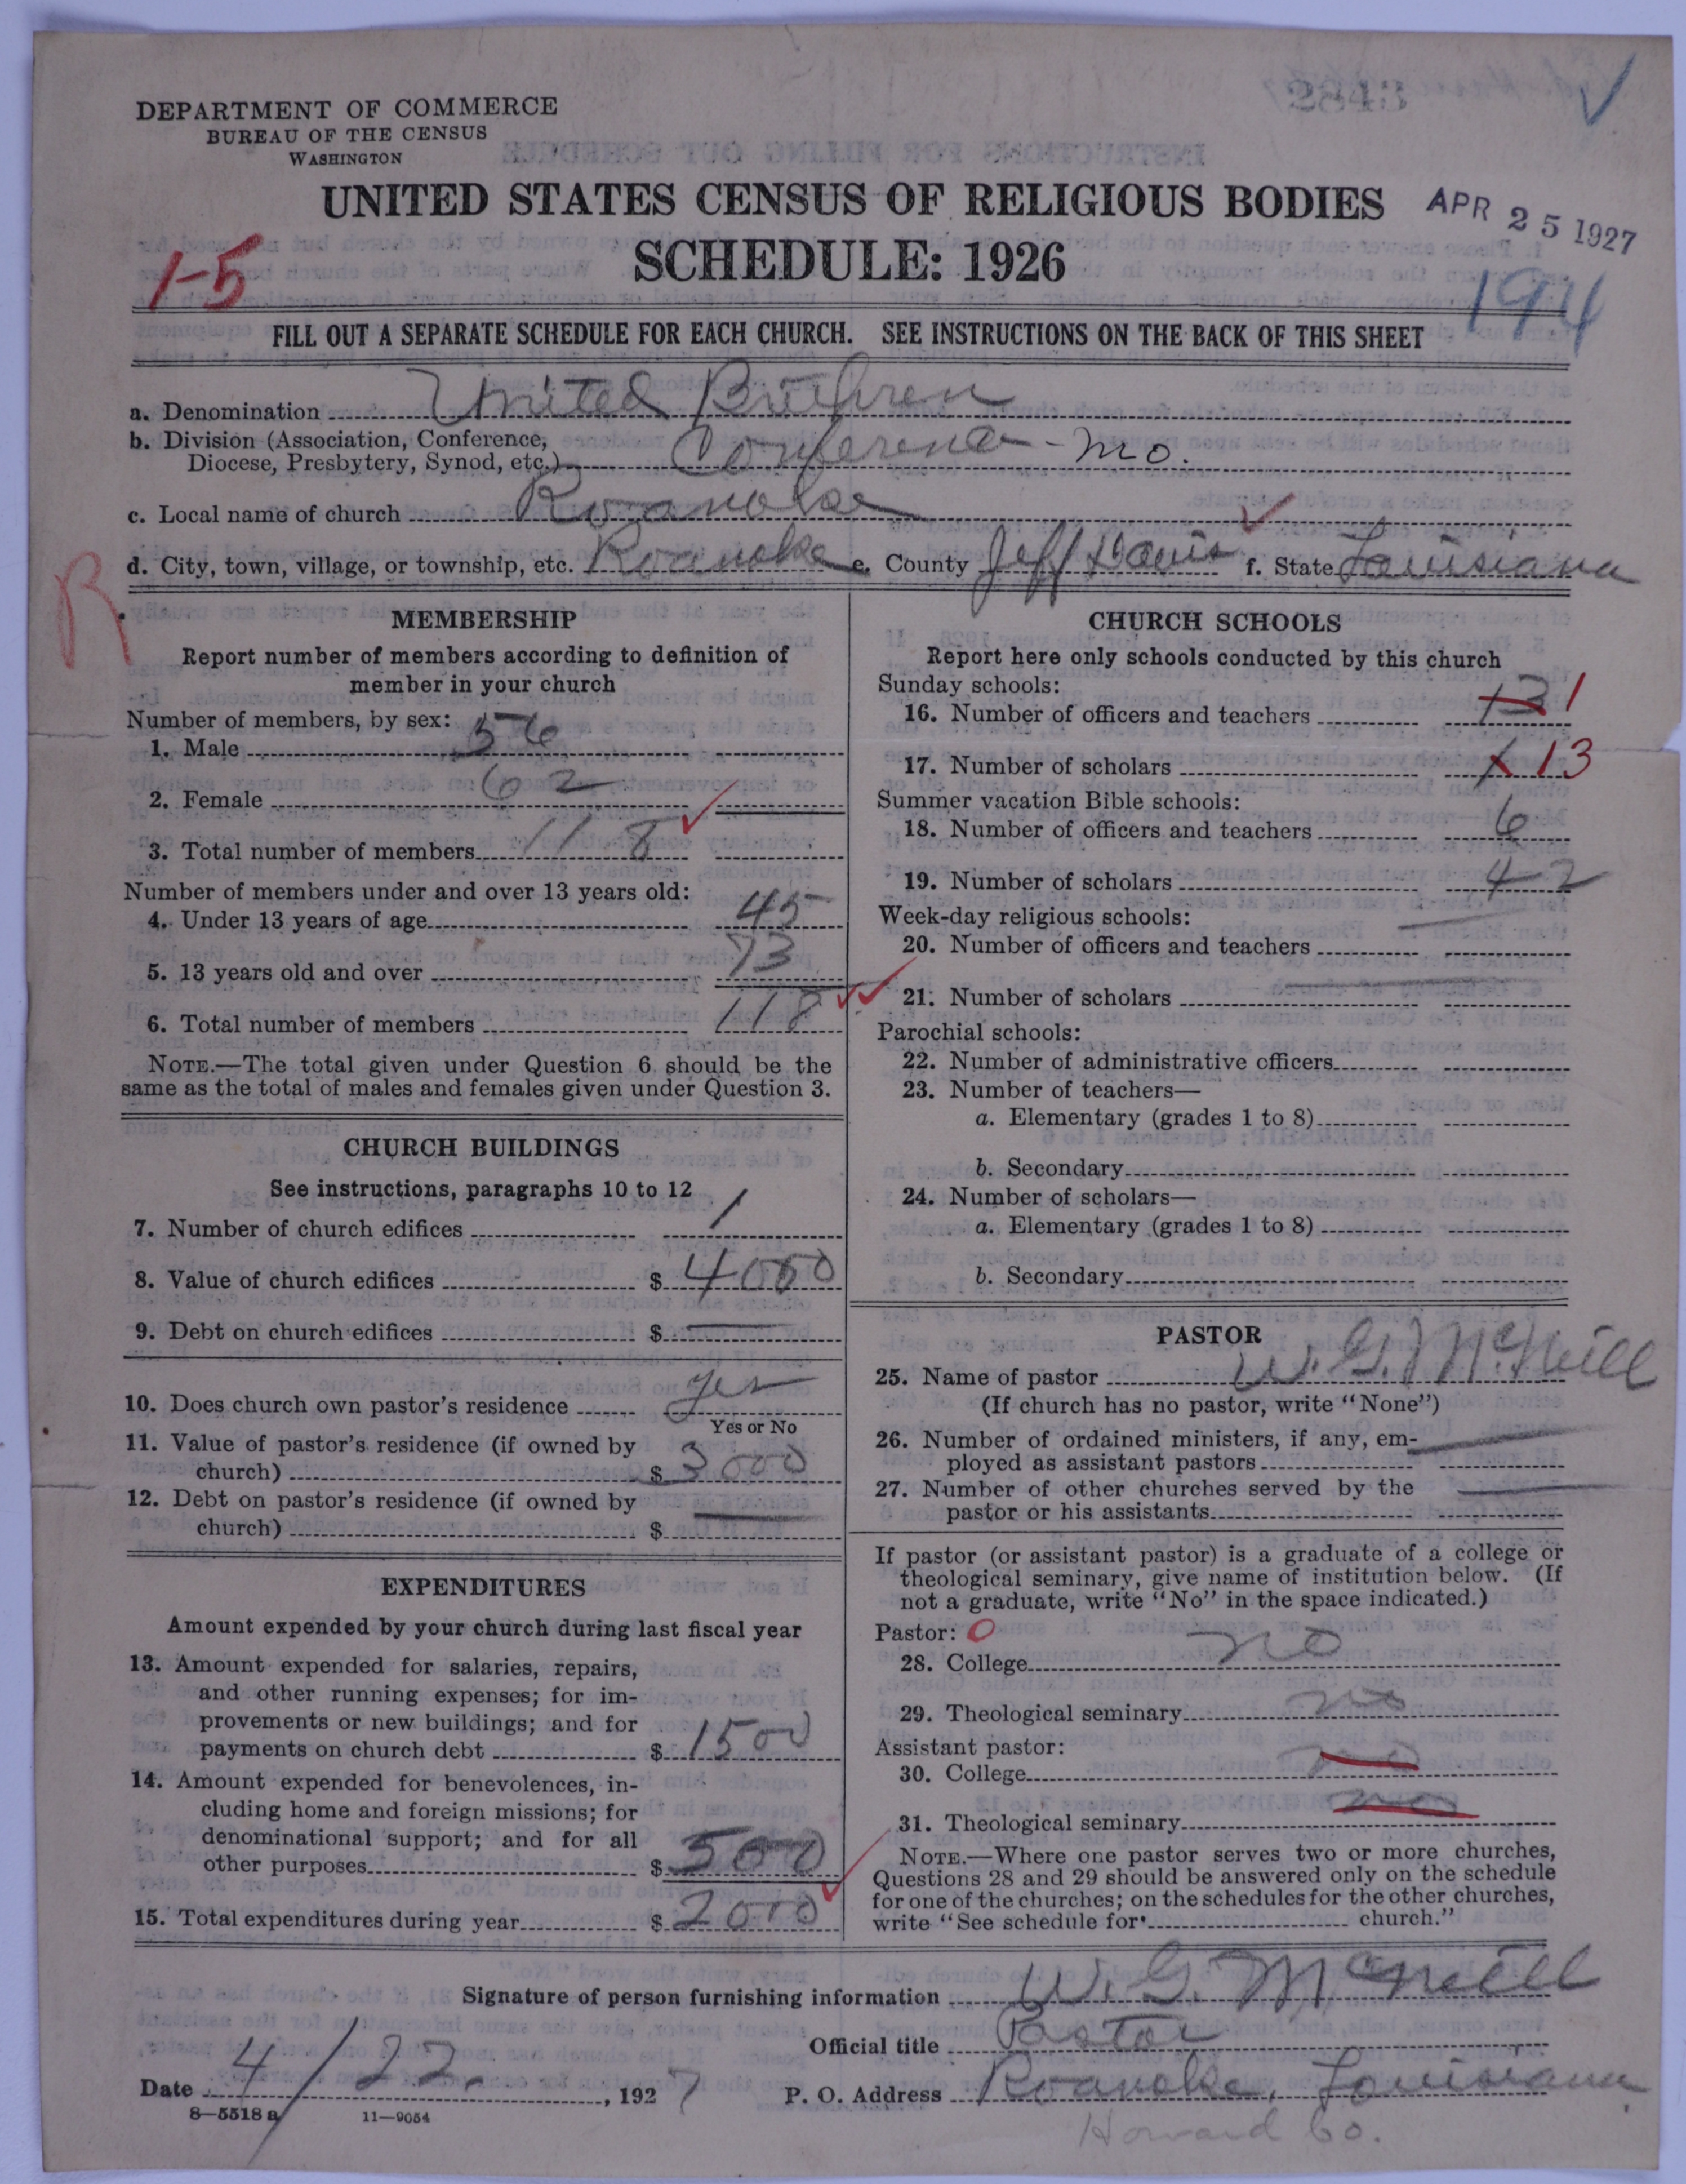 2843
DEPARTMENT OF COMMERCE
BUREAU OF THE CENSUS
WASHINGTON
INSTRUCTIONS FOR FILLING OUT SCHEDULE
UNITED STATES CENSUS OF RELIGIOUS BODIES
APR 25 1927
SCHEDULE: 1926
1-5
194
FILL OUT A SEPARATE SCHEDULE FOR EACH CHURCH. SEE INSTRUCTIONS ON THE BACK OF THIS SHEET
a. Denomination United Brethren
b. Division (Association, Conference,
Diocese, Presbytery, Synod, etc.) Conference - Mo.
c. Local name of church Roanoke
d. City, town, village, or township, etc. Roanoke e. County Jeff Davis f. State Louisiana
R
MEMBERSHIP
Report number of members according to definition of
member in your church
Number of members, by sex:
1. Male 56
2. Female 62
3. Total number of members 118
Number of members under and over 13 years old:
4. Under 13 years of age 45
5. 13 years old and over 73
6. Total number of members 118
NOTE.—The total given under Question 6 should be the
same as the total of males and females given under Question 3.
CHURCH BUILDINGS
See instructions, paragraphs 10 to 12
7. Number of church edifices 1
8. Value of church edifices $ 4000
9. Debt on church edifices $ —
10. Does church own pastor's residence yes
Yes or No
11. Value of pastor's residence (if owned by
church) $ 3000
12. Debt on pastor's residence (if owned by
church) $ —
EXPENDITURES
Amount expended by your church during last fiscal year
13. Amount expended for salaries, repairs,
and other running expenses; for im-
provements or new buildings; and for
payments on church debt $ 1500
14. Amount expended for benevolences, in-
cluding home and foreign missions; for
denominational support; and for all
other purposes $ 500
15. Total expenditures during year $ 2000
CHURCH SCHOOLS
Report here only schools conducted by this church
Sunday schools:
16. Number of officers and teachers 13 1
17. Number of scholars 13
Summer vacation Bible schools:
18. Number of officers and teachers 6
19. Number of scholars 42
Week-day religious schools:
20. Number of officers and teachers —
21. Number of scholars —
Parochial schools:
22. Number of administrative officers
23. Number of teachers—
a. Elementary (grades 1 to 8)
b. Secondary
24. Number of scholars—
a. Elementary (grades 1 to 8)
b. Secondary
PASTOR
25. Name of pastor W. G. McNeill
(If church has no pastor, write "None")
26. Number of ordained ministers, if any, em-
ployed as assistant pastors —
27. Number of other churches served by the
pastor or his assistants —
If pastor (or assistant pastor) is a graduate of a college or
theological seminary, give name of institution below. (If
not a graduate, write "No" in the space indicated.)
Pastor: 0
28. College no
29. Theological seminary no
Assistant pastor:
30. College no
31. Theological seminary no
NOTE.—Where one pastor serves two or more churches,
Questions 28 and 29 should be answered only on the schedule
for one of the churches; on the schedules for the other churches,
write "See schedule for church."
Signature of person furnishing information W. G. McNeill
Official title Pastor
Date 4/22, 1927 P. O. Address Roanoke, Louisiana
8—5518 a 11—9054
Howard Co.